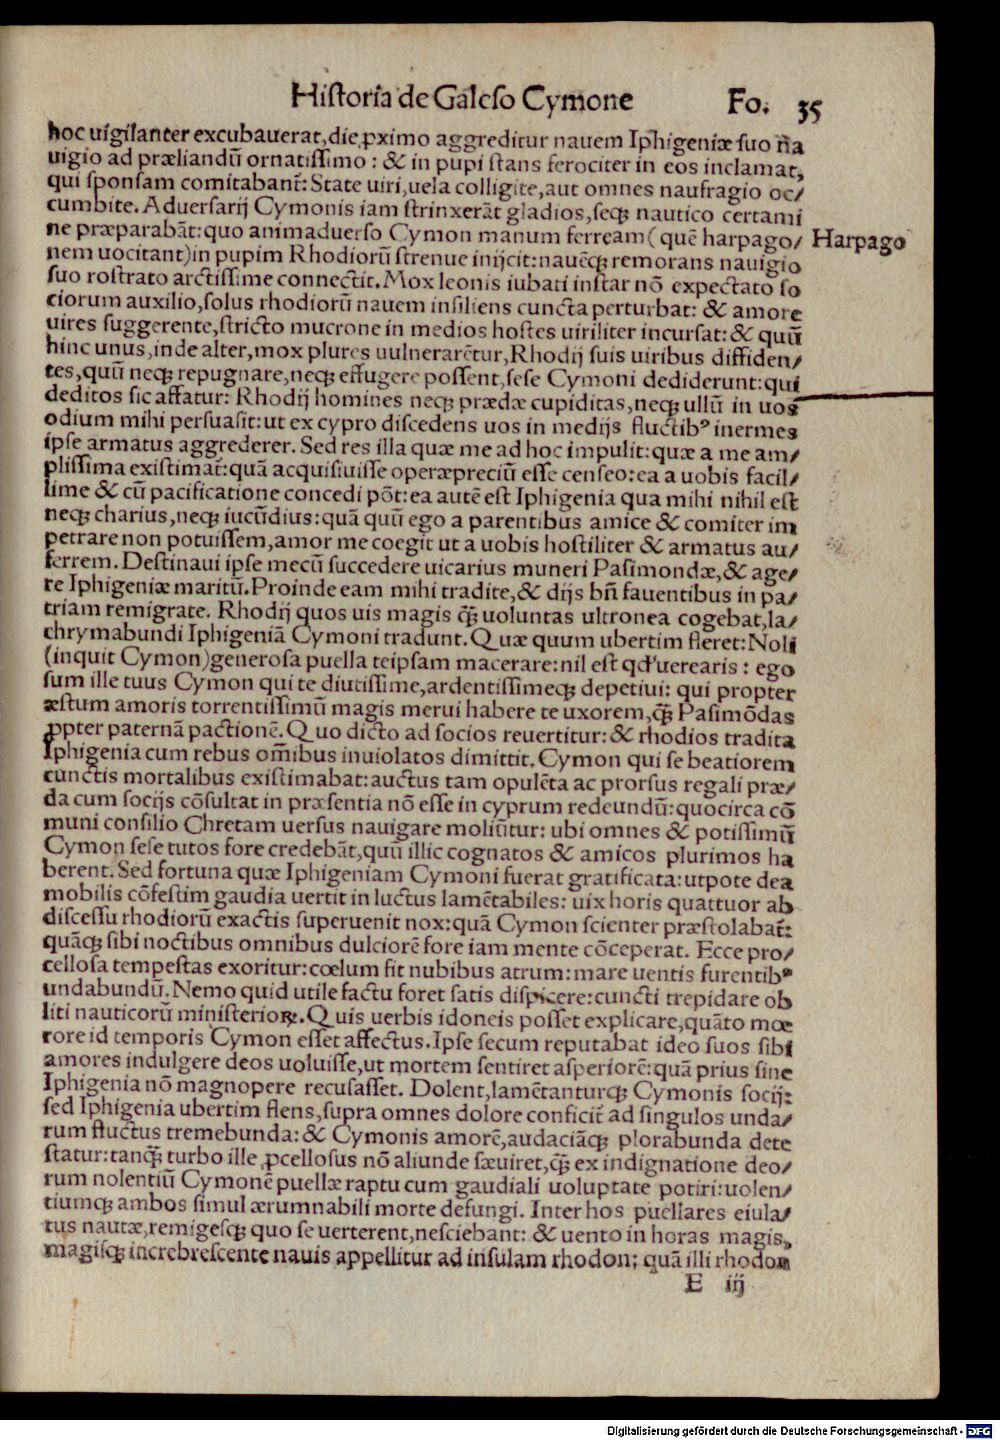 Historia de Galeso Cymone Fo. 35
hoc uigilanter excubauerat, die ꝓximo aggreditur nauem Iphigeniæ suo na̅
uigio ad præliandũ ornatissimo: & in pupi stans ferociter in eos inclamat,
qui sponsam comitabant̃: State uiri, uela colligite, aut omnes naufragio oc/
cumbite. Aduersarij Cymonis iam strinxerãt gladios, seqꝫ nautico certami
ne præparabãt: quo animaduerso Cymon manum ferream (quẽ harpago/
Harpago
nem uocitant) in pupim Rhodiorũ strenue inijcit: nauẽqꝫ remorans nauigio
suo rostrato arctissime connectit. Mox leonis iubati instar nõ expectato so
ciorum auxilio, solus rhodiorũ nauem insiliens cuncta perturbat: & amore
uires suggerente, stricto mucrone in medios hostes uiriliter incursat: & quũ
hinc unus, inde alter, mox plures uulnerarẽtur, Rhodij suis uiribus diffiden/
tes, quũ neqꝫ repugnare, neqꝫ effugere possent, sese Cymoni dediderunt: qui
deditos sic affatur: Rhodij homines neqꝫ prædæ cupiditas, neqꝫ ullũ in uos
odium mihi persuasit: ut ex cypro discedens uos in medijs fluctibꝰ inermes
ipse armatus aggrederer. Sed res illa quæ me ad hoc impulit: quæ a me am/
plissima existimat̃: quã acquisiuisse operæpreciũ esse censeo: ea a uobis facil/
lime & cũ pacificatione concedi põt: ea autẽ est Iphigenia qua mihi nihil est
neqꝫ charius, neqꝫ iucũdius: quã quũ ego a parentibus amice & comiter im
petrare non potuissem, amor me coegit ut a uobis hostiliter & armatus au/
ferrem. Destinaui ipse mecũ succedere uicarius muneri Pasimondæ, & age/
re Iphigeniæ maritũ. Proinde eam mihi tradite, & dijs bñ fauentibus in pa/
triam remigrate. Rhodij quos uis magis q̃ꝫ uoluntas ultronea cogebat, la/
chrymabundi Iphigeniã Cymoni tradunt. Quæ quum ubertim fleret: Noli
(inquit Cymon) generosa puella teipsam macerare: nil est qđ uerearis: ego
sum ille tuus Cymon qui te diutissime, ardentissimeqꝫ depetiui: qui propter
æstum amoris torrentissimũ magis merui habere te uxorem, q̃ꝫ Pasimõdas
ꝓpter paternã pactionẽ. Quo dicto ad socios reuertitur: & rhodios tradita
Iphigenia cum rebus om̃ibus inuiolatos dimittit. Cymon qui se beatiorem
cunctis mortalibus existimabat: auctus tam opulẽta ac prorsus regali præ/
da cum socijs cõsultat in præsentia nõ esse in cyprum redeundũ: quocirca cõ
muni consilio Chretam uersus nauigare moliũtur: ubi omnes & potissimũ
Cymon sese tutos fore credebãt, quũ illic cognatos & amicos plurimos ha
berent. Sed fortuna quæ Iphigeniam Cymoni fuerat gratificata: utpote dea
mobilis cõfestim gaudia uertit in luctus lamẽtabiles: uix horis quattuor ab
discessu rhodiorũ exactis superuenit nox: quã Cymon scienter præstolabat̃:
quãqꝫ sibi noctibus omnibus dulciorẽ fore iam mente cõceperat. Ecce pro/
cellosa tempestas exoritur: cœlum fit nubibus atrum: mare uentis furentibꝰ
undabundũ. Nemo quid utile factu foret satis dispicere: cuncti trepidare ob
liti nauticorũ ministerioꝝ. Quis uerbis idoneis posset explicare, quãto mœ
rore id temporis Cymon esset affectus. Ipse secum reputabat ideo suos sibi
amores indulgere deos uoluisse, ut mortem sentiret asperiorẽ: quã prius sine
Iphigenia nõ magnopere recusasset. Dolent, lamẽtanturqꝫ Cymonis socij:
sed Iphigenia ubertim flens, supra omnes dolore conficit̃ ad singulos unda/
rum fluctus tremebunda: & Cymonis amorẽ, audaciãqꝫ plorabunda dete
statur: tanq̃ꝫ turbo ille ꝓcellosus nõ aliunde sæuiret, q̃ꝫ ex indignatione deo/
rum nolentiũ Cymonẽ puellæ raptu cum gaudiali uoluptate potiri: uolen/
tiumqꝫ ambos simul ærumnabili morte defungi. Inter hos puellares eiula/
tus nautæ, remigesqꝫ quo se uerterent, nesciebant: & uento in horas magis,
magisqꝫ increbrescente nauis appellitur ad insulam rhodon: quã illi rhodon
E iij
Digitalisierung gefördert durch die Deutsche Forschungsgemeinschaft - DFG